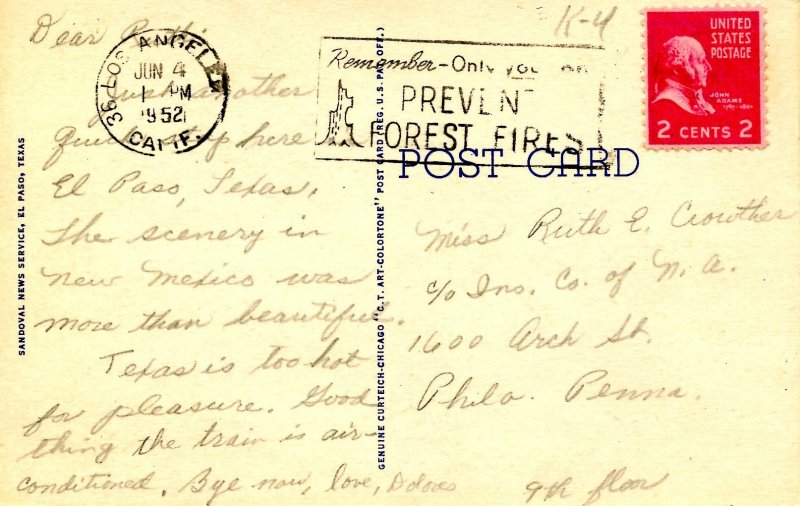 Dear Ruth:
Just another
quick stop here
El Paso, Texas.
The scenery in
New Mexico was
more than beautiful.
Texas is too hot
for pleasure. Good
thing the train is air-
conditioned. Bye now, love, Dolores
SANDOVAL NEWS SERVICE, EL PASO, TEXAS
GENUINE CURTEICH-CHICAGO "C.T. ART-COLORTONE" POST CARD (REG. U.S. PAT. OFF.)
LOS ANGELES
36
JUN 4
1 PM
1952
CALIF.
Remember-Only you
PREVENT
FOREST FIRES
K-4
UNITED
STATES
POSTAGE
JOHN
ADAMS
1797-1801
2 CENTS 2
POST CARD
Miss Ruth E. Crowther
c/o Ins. Co. of N. A.
1600 Arch St.
Phila. Penna.
9th floor